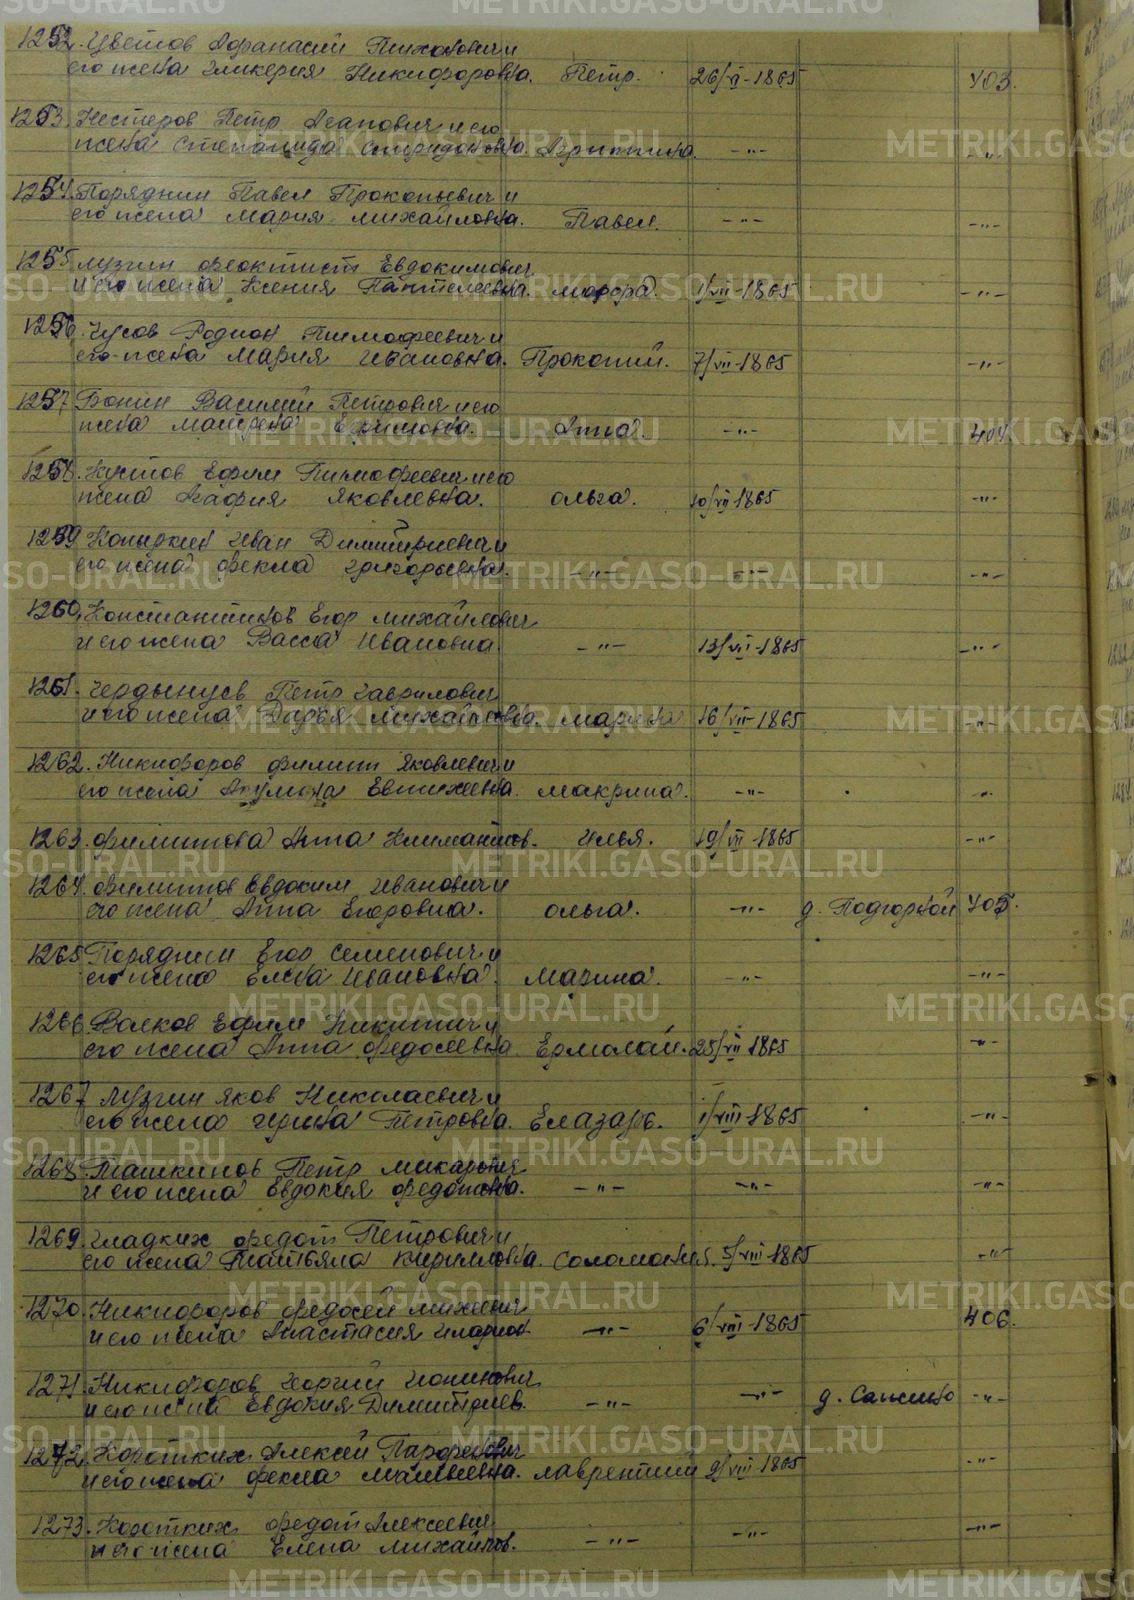 1252. Цветов Афанасий Тихонович и
его жена Гликерия Никифоровна. Петр. 26/VI-1865 403.
1253. Нестеров Петр Агапович и его
жена Степанида Спиридоновна. Агриппина. -"- -"-
1254. Поряднин Павел Прокопьевич и
его жена Мария Михайловна. Павел. -"- -"-
1255. Лузгин Феоктист Евдокимович
и его жена Ксения Пантелеевна. Марфа. 1/VII-1865 -"-
1256. Чусов Родион Тимофеевич и
его жена Мария Ивановна. Прокопий. 7/VII-1865 -"-
1257. Бонин Василий Петрович и его
жена Матрена Ефимовна. Анна. -"- 404.
1258. Кустов Ефим Тимофеевич и его
жена Агафия Яковлевна. Ольга. 10/VII-1865 -"-
1259. Копыркин Иван Димитриевич и
его жена Фекла Григорьевна. -"- -"- -"-
1260. Константинов Егор Михайлович
и его жена Васса Ивановна -"- 13/VII-1865 -"-
1261. Чердынцев Петр Гаврилович
и его жена Дарья Михайловна. Марина 16/VII-1865 -"-
1262. Никифоров Филипп Яковлевич и
его жена Акулина Евтихеевна. Макрина. -"- -"-
1263. Филиппова Анна Климантов. Илья. 19/VII-1865 -"-
1264. Филиппов Евдоким Иванович и
его жена Анна Егоровна. Ольга. -"- д. Подгорной 405.
1265 Поряднин Егор Семенович и
его жена Елена Ивановна. Мазина. -"- -"-
1266. Волков Ефим Никитич и
его жена Анна Федосеевна Ермолай. 25/VII 1865 -"-
1267 Лузгин Яков Николаевич и
его жена Ирина Петровна. Елазарь. 1/VIII-1865 -"-
1268. Ташкинов Петр Макарович
и его жена Евдокия Федотовна. -"- -"- -"-
1269. Гладких Федот Петрович и
его жена Татьяна Кирилловна. Соломония. 5/VIII-1865 -"-
1270. Никифоров Федосей Михеевич
и его жена Анастасия Иларион. -"- 6/VIII-1865 406.
1271. Никифоров Георгий Ионикович
и его жена Евдокия Димитриев. -"- -"- д. Сапсино -"-
1272. Коротких Алексей Парфенович
и его жена Фекла Матвеевна. Лаврентий 9/VIII-1865 -"-
1273. Коротких Федот Алексеевич
и его жена Елена Михайлов. -"- -"- -"-